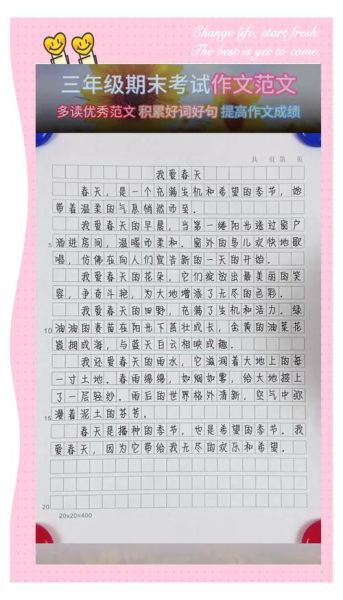 Change life, start fresh.
The best is yet to come.
三年级期末考试作文范文
多读优秀范文 积累好词好句 提高作文成绩
共 页 第 页
我爱春天
春天，是一个充满生机和希望的季节，她
带着温柔的气息悄然而至。
我爱春天的早晨，当第一缕阳光透过窗户
5 洒进房间，温暖而柔和，窗外的鸟儿欢快地歌
唱，仿佛在向人们宣告新的一天的开始。
我爱春天的花朵，它们绽放出最美丽的笑
容，争奇斗艳，为大地增添了无尽的色彩。
我爱春天的田野，充满了生机和活力。绿
10 油油的麦苗在阳光下茁壮成长，金黄的油菜花
簇拥成海，与蓝天白云相映成趣。
我还爱春天的雨水，它滋润着大地上的每
一寸土地。春雨绵绵，如烟如雾，给大地披上
了一层轻纱。雨后的世界格外清新，空气中弥
15 漫着泥土的芬芳。
春天是播种的季节，也是希望的季节。我
爱春天，因为它带给我无尽的欢乐和希望。
20
20x20=400